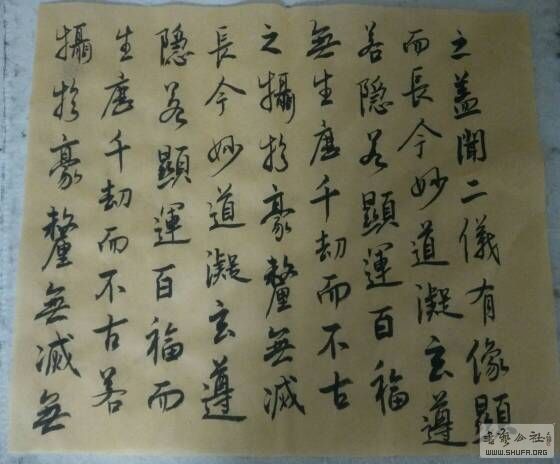 之盖聞二儀有像顯
而長今妙道凝玄遵
若隱若顯運百福
無生歷千劫而不古
之攝於豪釐無滅
長今妙道凝玄遵
隱若顯運百福而
生歷千劫而不古若
攝於豪釐無滅無
書藝公社
WWW.SHUFA.ORG